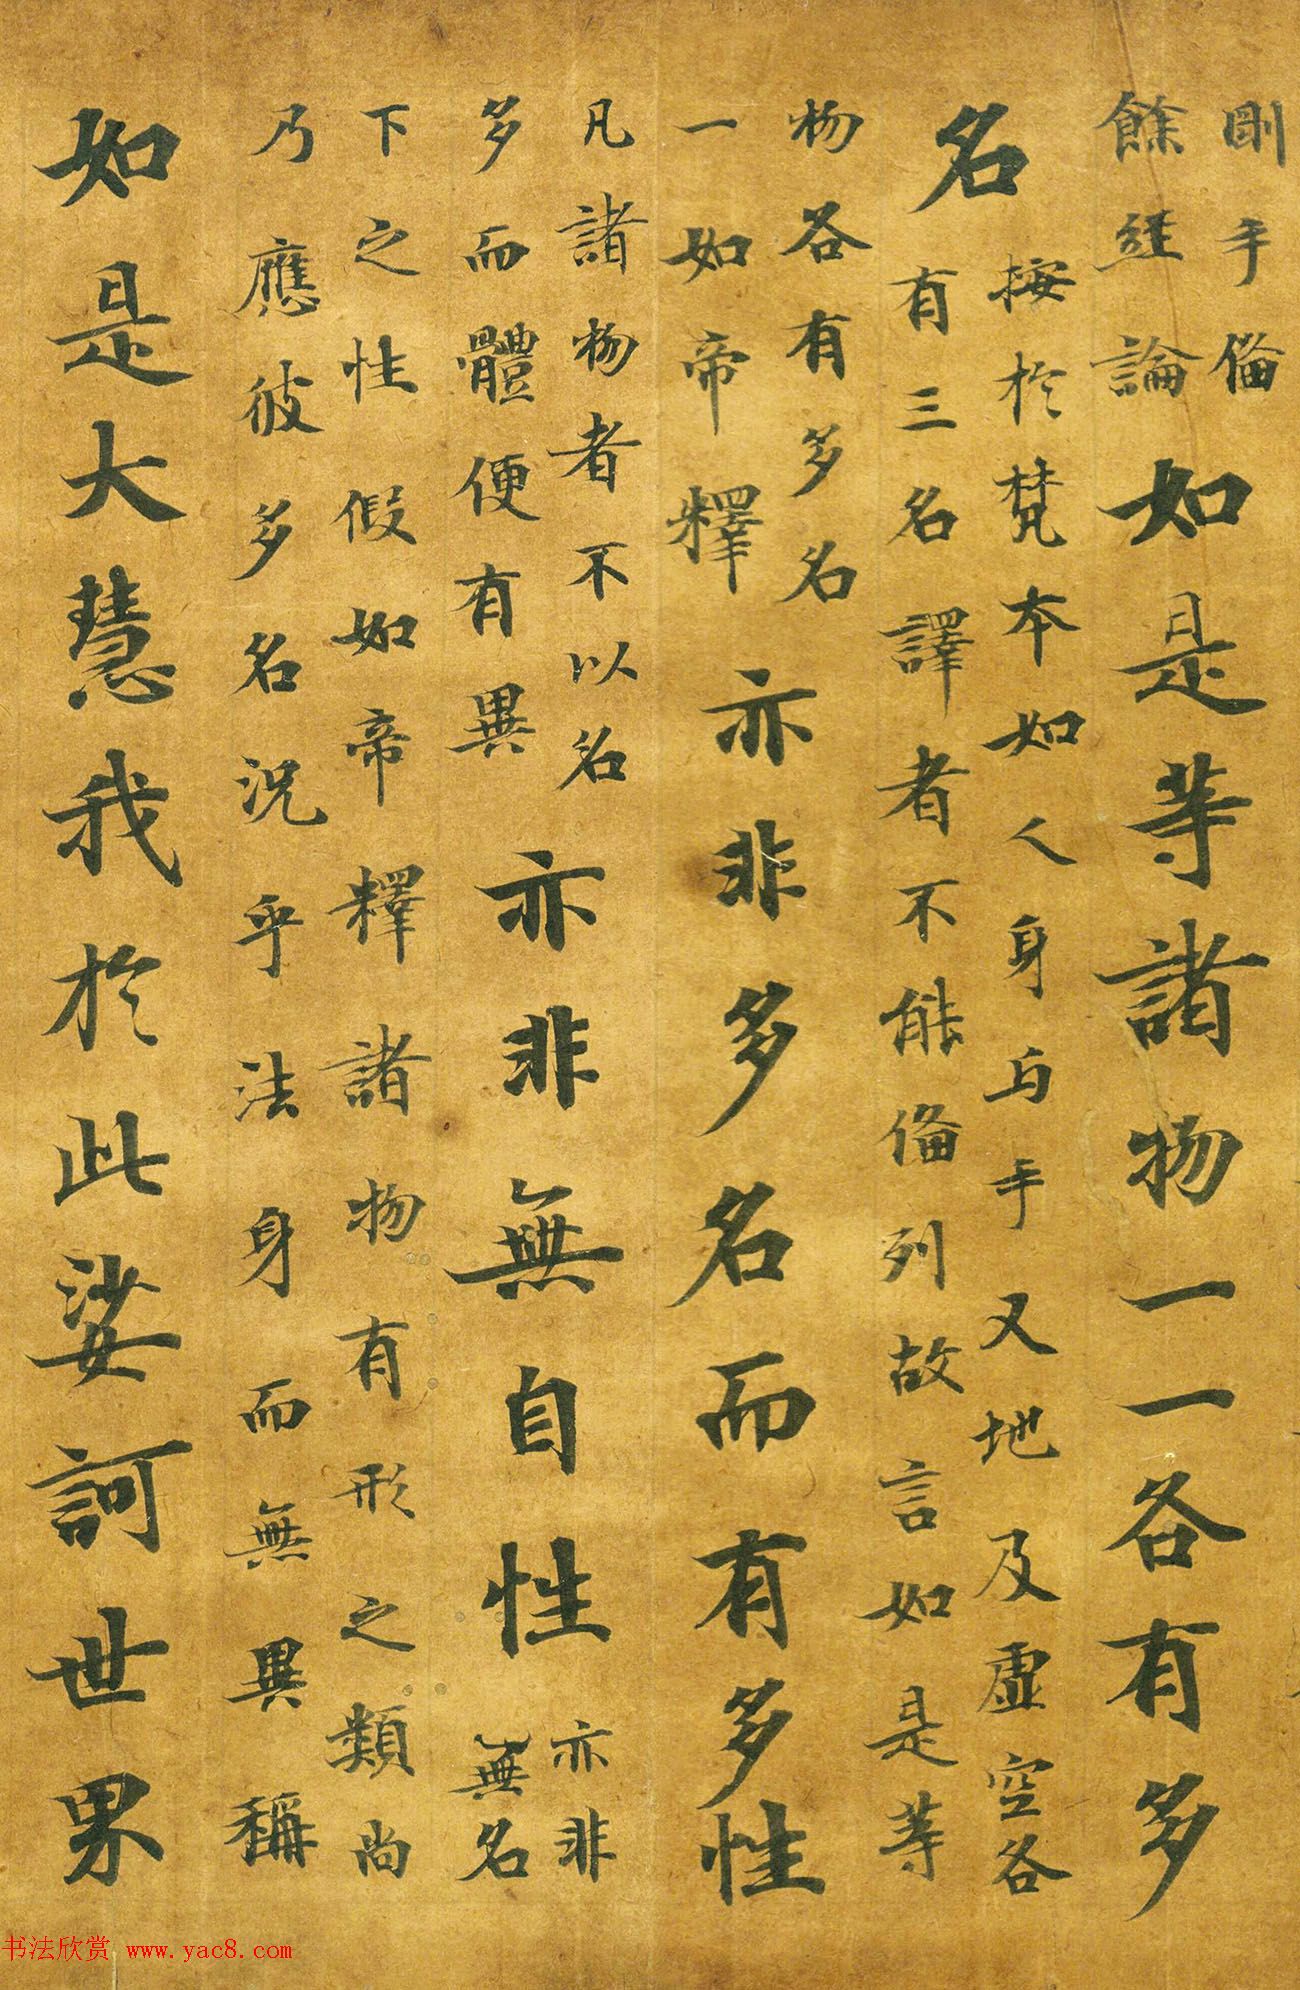 剛手俻
餘經論
如是等諸物一一各有多
名
按於梵本如人身与手又地及虛空各
有三名譯者不能俻列故言如是等
物各有多名
一如帝釋
亦非多名而有多性
凡諸物者不以名
多而體便有異
亦非無自性
亦非
無名
下之性假如帝釋諸物有形之類尚
乃應彼多名況乎法身而無異稱
如是大慧我於此娑訶世界
书法欣赏 www.yac8.com